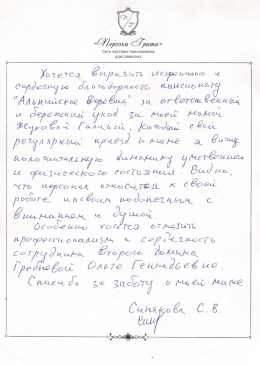 «Персона Грата»
Сеть частных пансионатов
для пожилых
Хочется выразить искреннюю и
сердечную благодарность пансионату
"Альпийские Деревня" за ответственный
и бережный уход за моей мамой
Жуковой Галиной. Каждый свой
регулярный приезд к маме я вижу
положительную динамику умственного
и физического состояния. Видно,
что персонал относится к своей
работе и своим подопечным с
вниманием и душой.
Особенно хочется отметить
профессионализм и сердечность
сотрудника второго домика
Гребневой Ольге Геннадьевне.
Спасибо за заботу о моей маме
Синякова С. В.